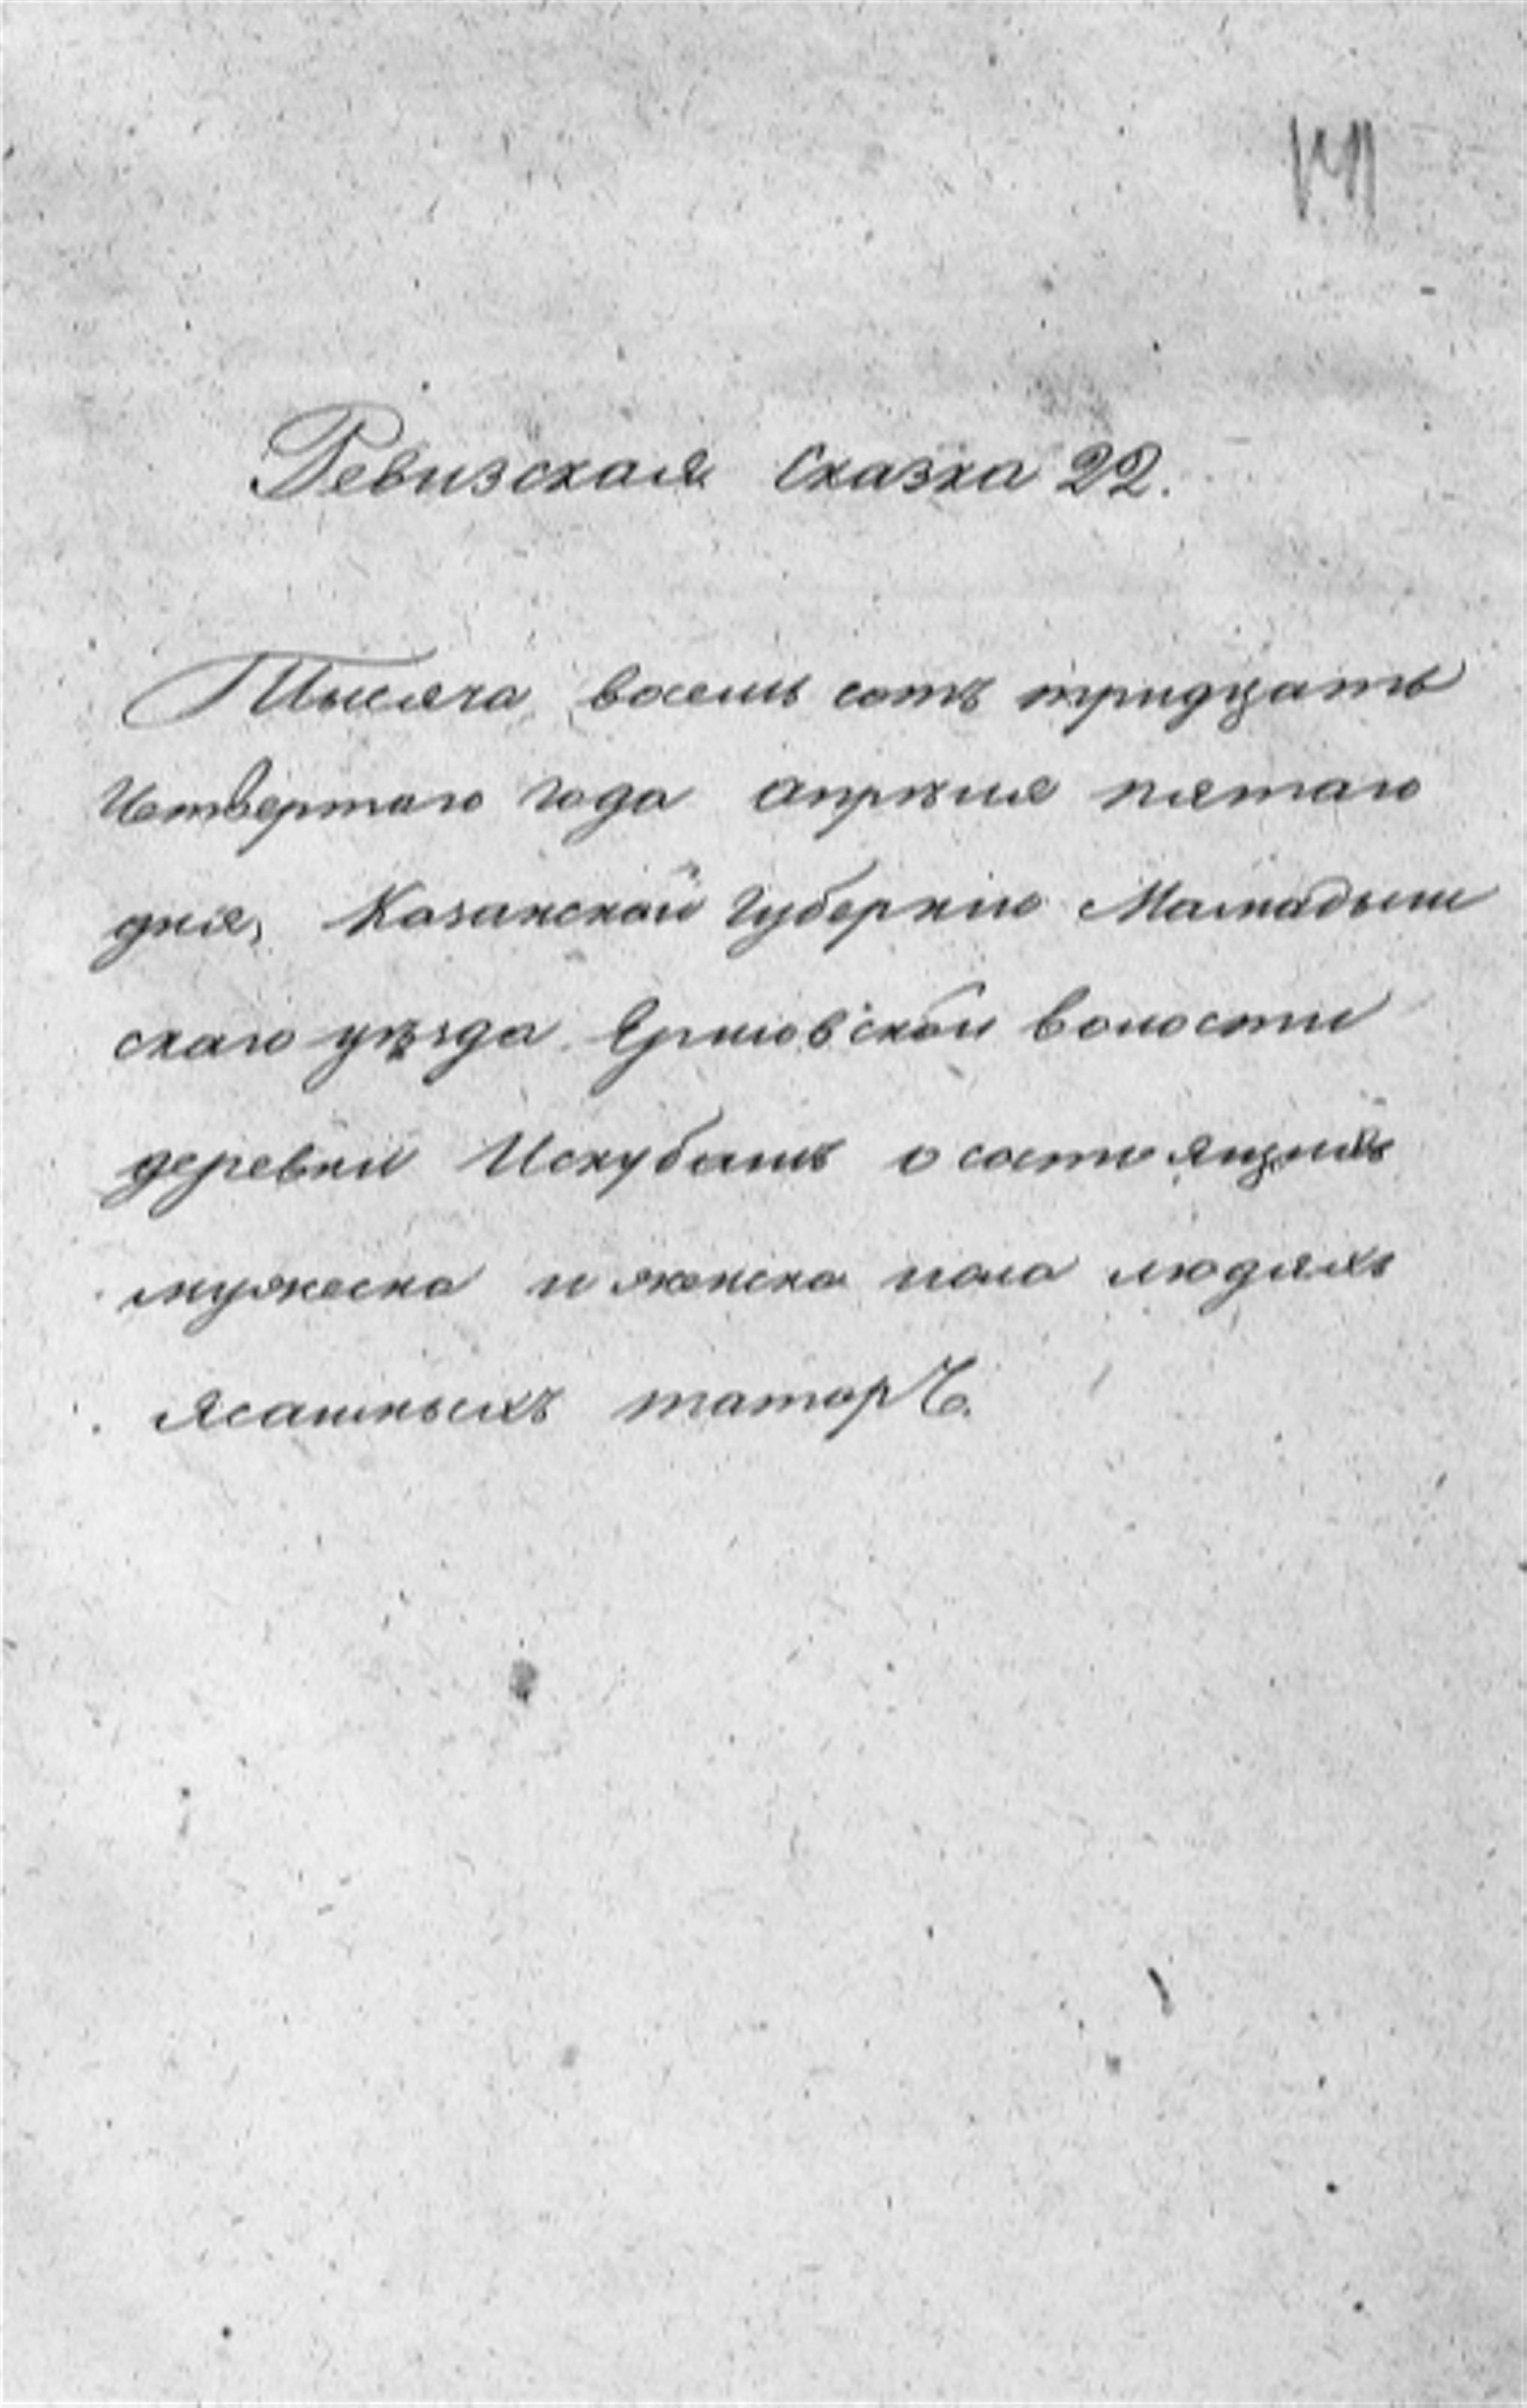 Ревизская Сказка 22.
Тысяча восемь сотъ тридцать
Четвертаго года апрѣля пятаго
дня, Казанской Губерніи Мамадыш
скаго уѣзда Ершовской волости
деревни Искубашъ о состоящихъ
мужеска и женска пола людяхъ
Ясашныхъ татаръ.